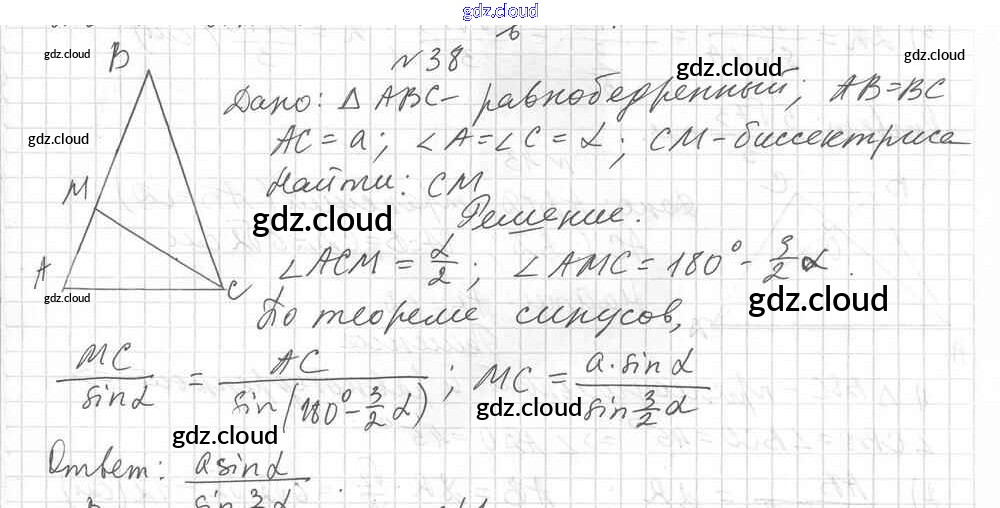 gdz.cloud
№38
B
gdz.cloud
gdz.cloud
gdz.cloud
Дано: △ ABC - равнобедренный; AB=BC
gdz.cloud
AC = a; ∠A=∠C = α; CM-биссектриса
M
Найти: CM
gdz.cloud
Решение.
A
C
∠ACM = α/2; ∠AMC = 180° - 3/2 α.
gdz.cloud
gdz.cloud
По теореме синусов,
MC/sinα = AC/sin(180°-3/2 α); MC = a·sinα/sin 3/2 α
gdz.cloud
gdz.cloud
Ответ: a sinα/sin 3/2 α